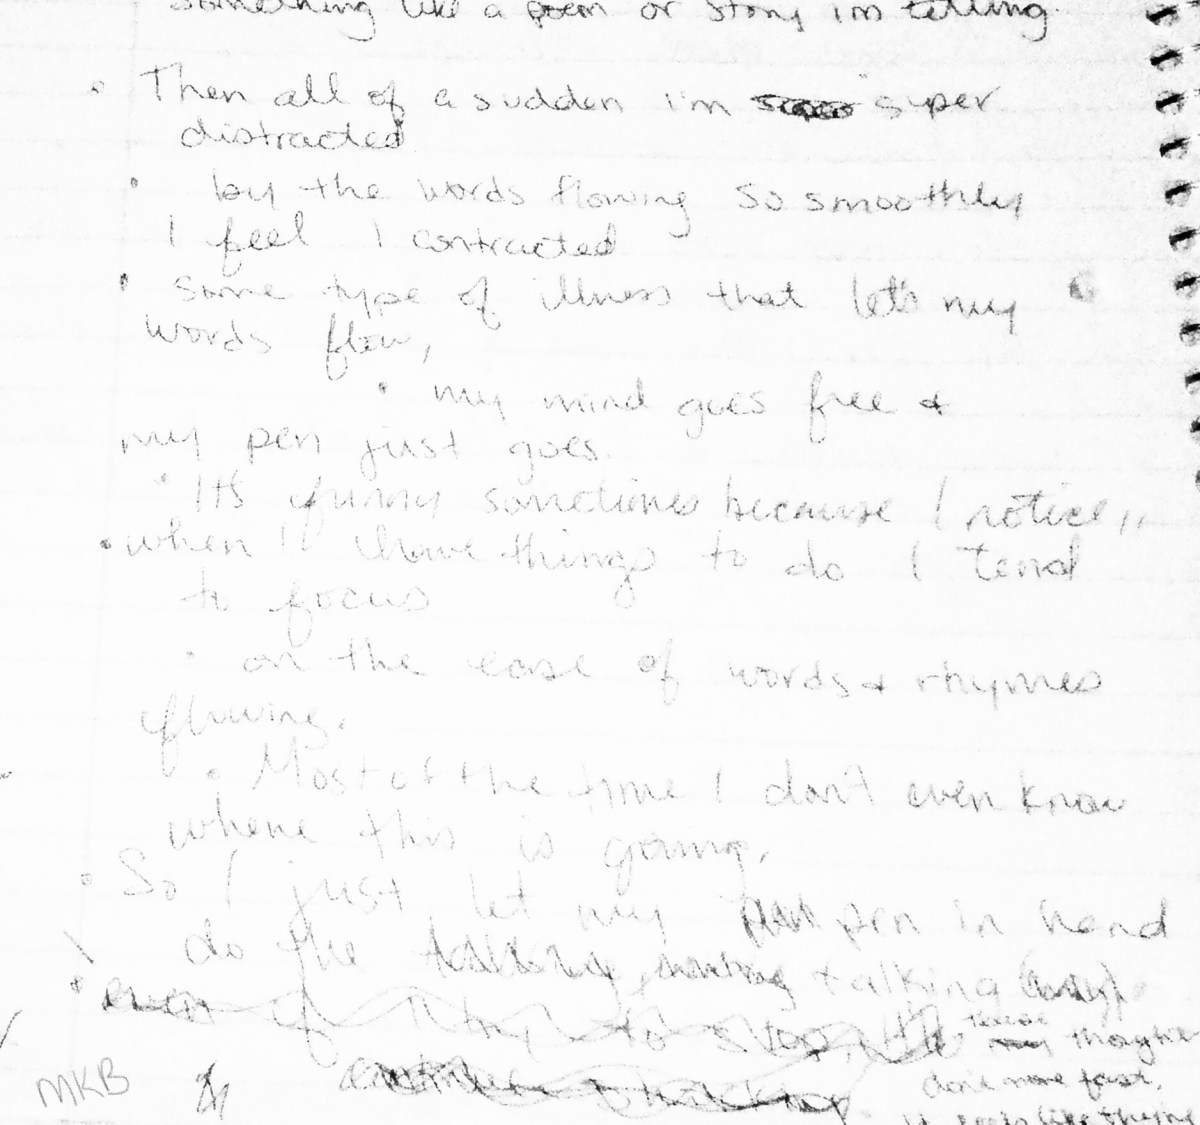 something like a poem or story i'm telling
• Then all of a sudden i'm super
distracted
• by the words flowing so smoothly
I feel I contracted
• some type of illness that let's my
words flow,
• my mind goes free &
my pen just goes.
• It's funny sometimes because I notice,,
• when I have things to do I tend
to focus
• on the ease of words & rhymes
flowing.
• Most of the time I don't even know
where this is going,
• So I just let my pen in hand
do the talking
• even if I try to stop, 
don't move fast.
MKB